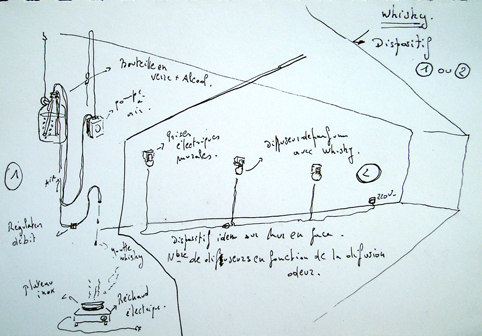 Whisky.
Dispositif
1 ou 2
Bouteille en
verre + Alcool.
pompe
à
air.
Prises
électriques
murales.
Diffuseurs de parfum
avec Whisky.
1
2
air
220V
Régulateur
débit
goutte
whisky
Plateau
inox
Réchaud
électrique.
Dispositif idem sur murs en face.
Nbre de diffuseurs en fonction de la diffusion
odeur.